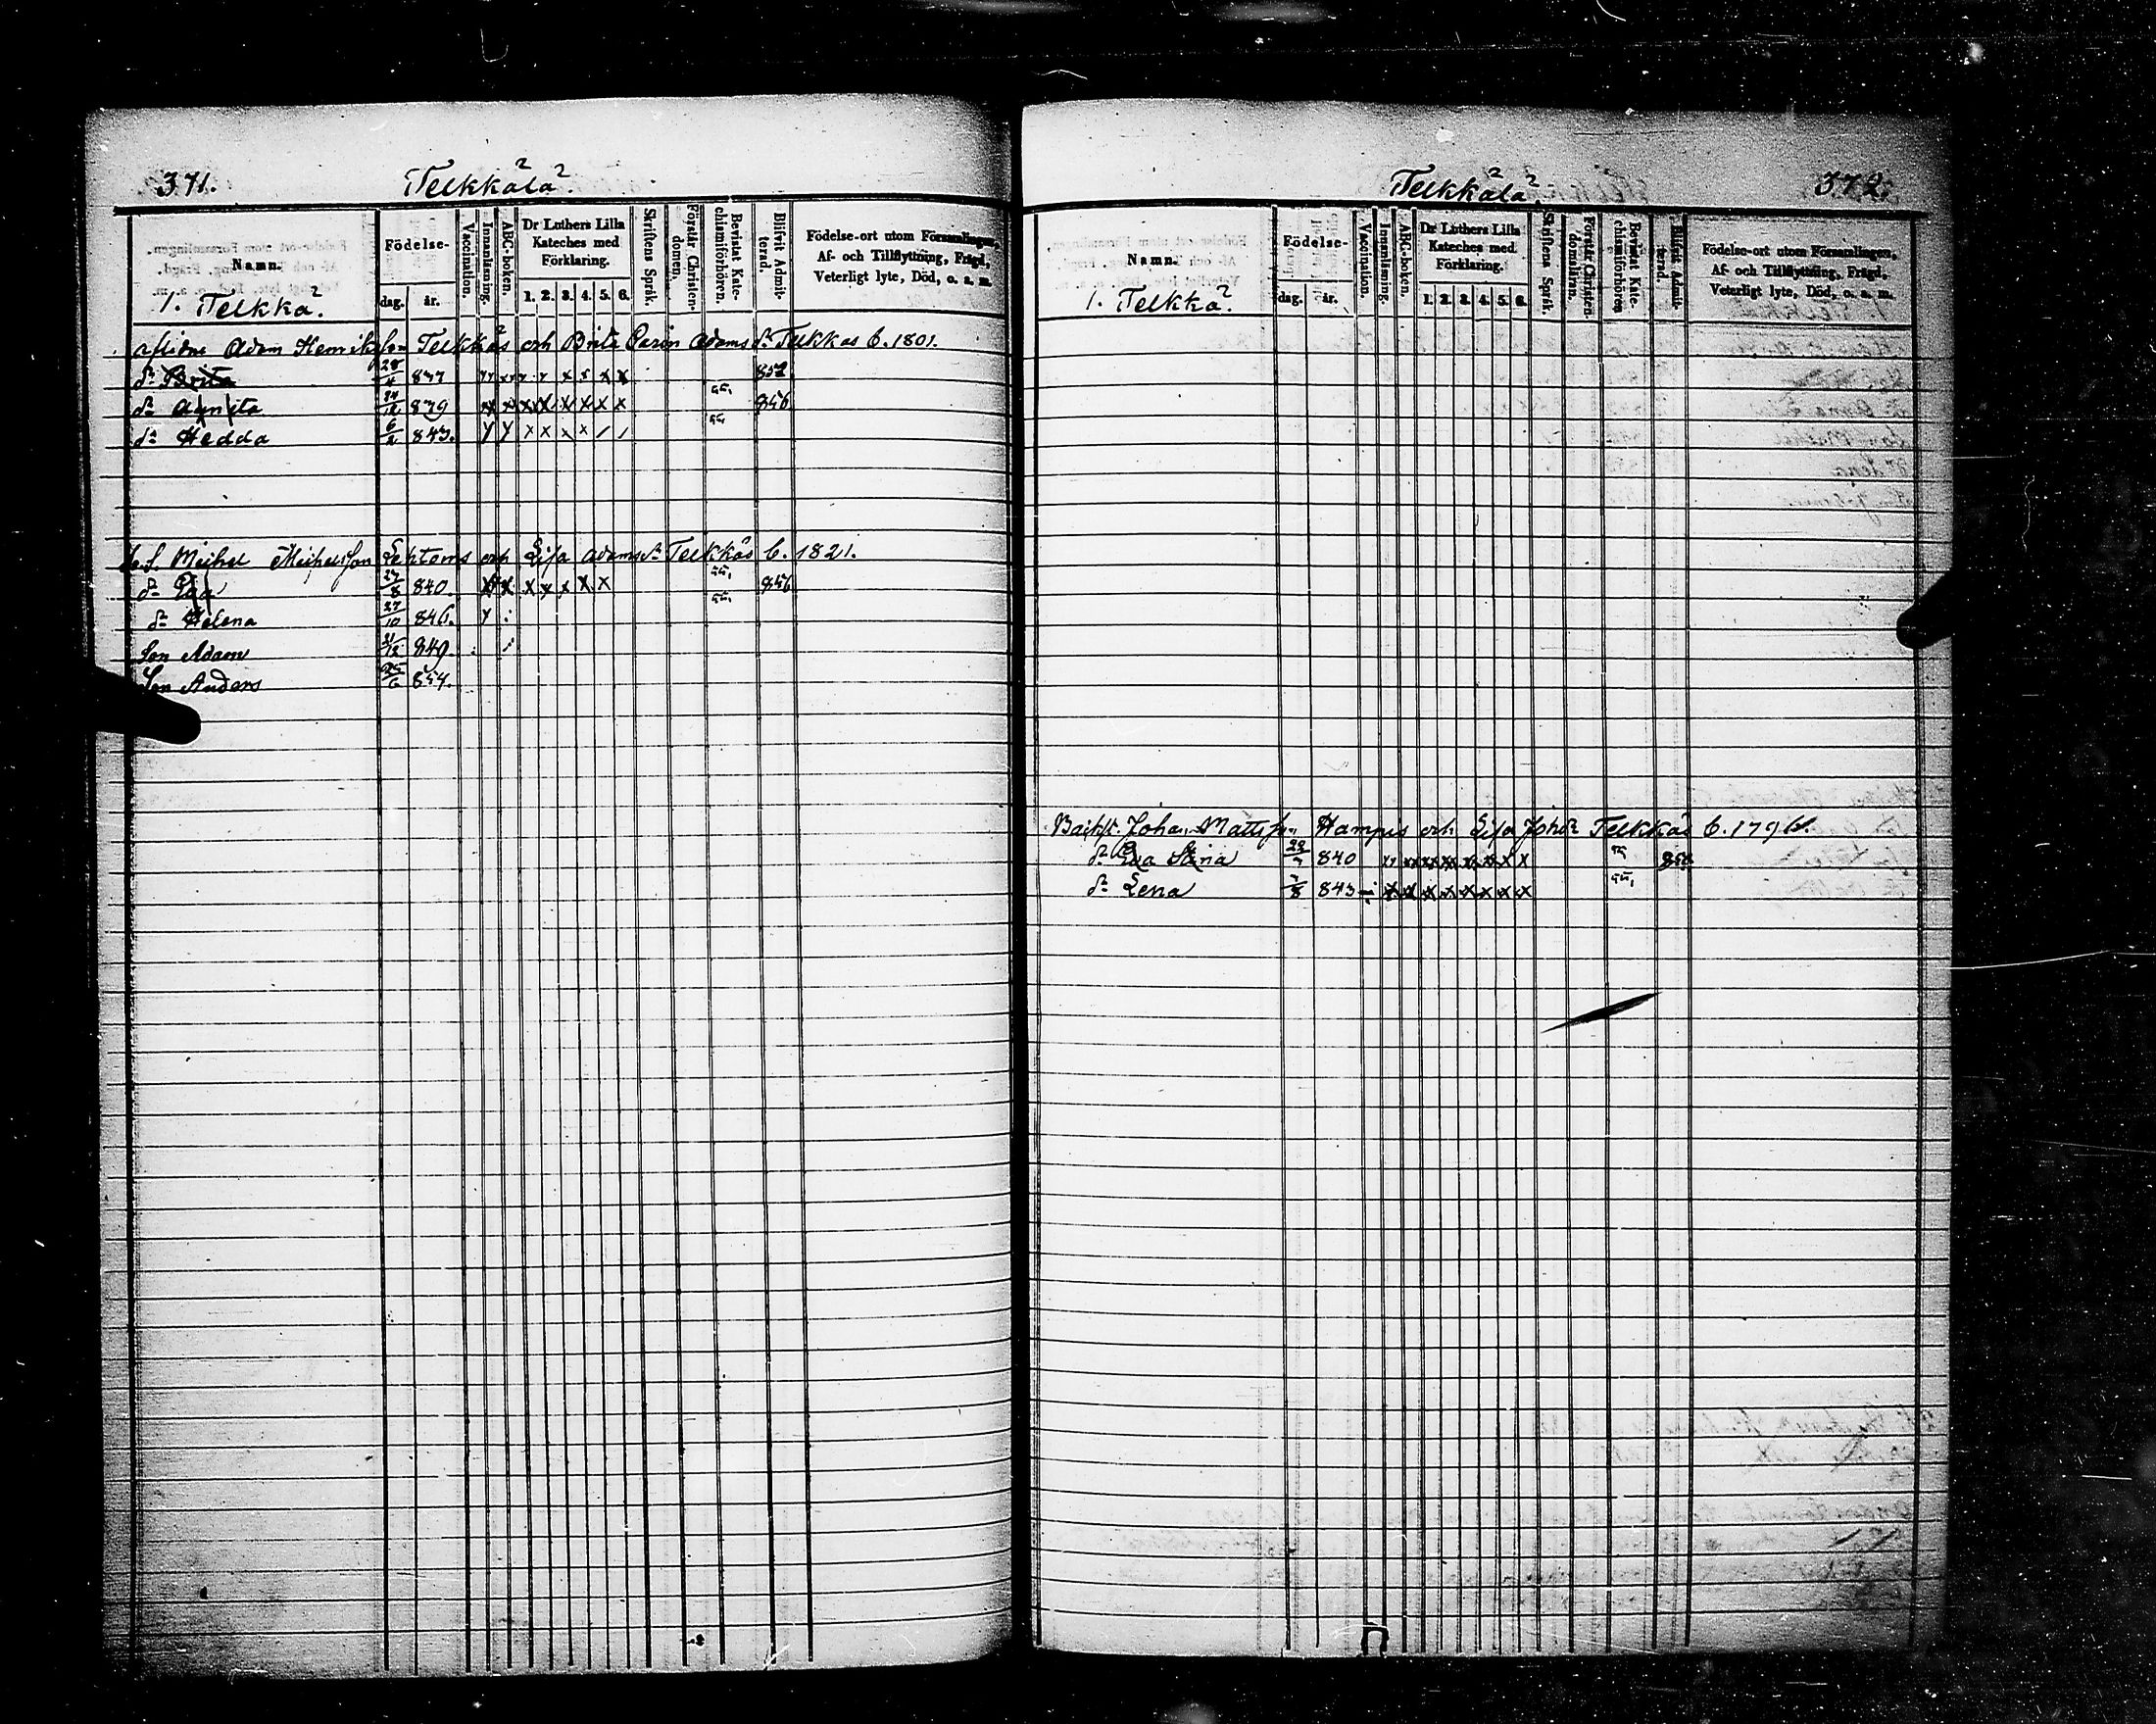 371.
Telkkälä.
Namn.
Födelse-
dag. år.
Vaccination.
Innanläsning.
ABC-boken.
Dr Luthers Lilla Kateches med Förklaring.
1. 2. 3. 4. 5. 6.
Skriftens Språk.
Förstår Christendomen.
Bevistat Katechismiförhören.
Blifvit Admitterad.
Födelse-ort utom Församlingen, Af- och Tillflyttning, Frägd, Veterligt lyte, Död, o. s. m.
1. Telkkä.
aflidne Adam Henriksson Telkkäs och Brita Carin Adams dr Telkkäs C. 1801.
dr Brita 28/4 837 852
dr Agneta 12 839 856
dr Hedda 6/2 843.
Michel Michelsson Lehtoms och Lisa Adams dr Telkkäs C. 1821.
dr Eva 27/8 840 856
dr Helena 27/10 846.
Son Adam 21/12 849.
Son Anders 25/6 854.
Telkkälä.
372.
Namn.
Födelse-
dag. år.
Vaccination.
Innanläsning.
ABC-boken.
Dr Luthers Lilla Kateches med Förklaring.
1. 2. 3. 4. 5. 6.
Skriftens Språk.
Förstår Christendomsläran.
Bevistat Katechismiförhören
Blifvit Admitterad.
Födelse-ort utom Församlingen, Af- och Tillflyttning, Frägd, Veterligt lyte, Död, o. s. m.
1. Telkkä.
Johan Mattsson Hampus och Lisa Johdr Telkkäs C. 1796.
dr Eva Stina 22/7 840
dr Lena 7/8 843